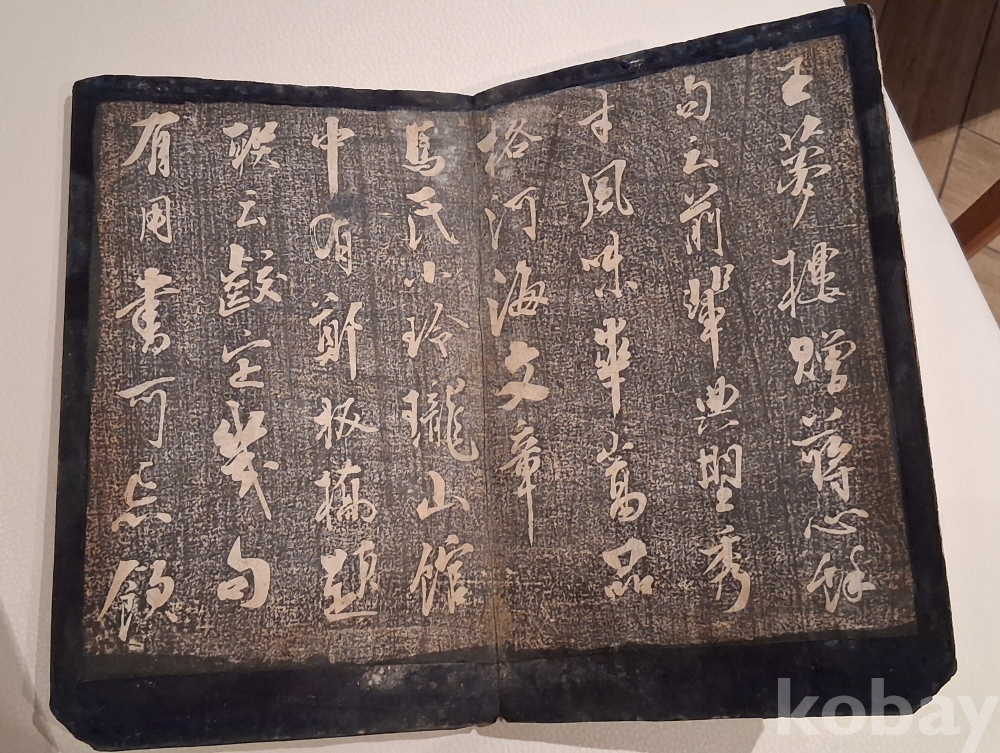 王夢樓贈蔣心餘
句云前輩典型秀
才風味華嵩品
格河海文章
馬氏小玲瓏山館
中有鄭板橋題
联云咬定幾句
有用書可忘飲
kobay